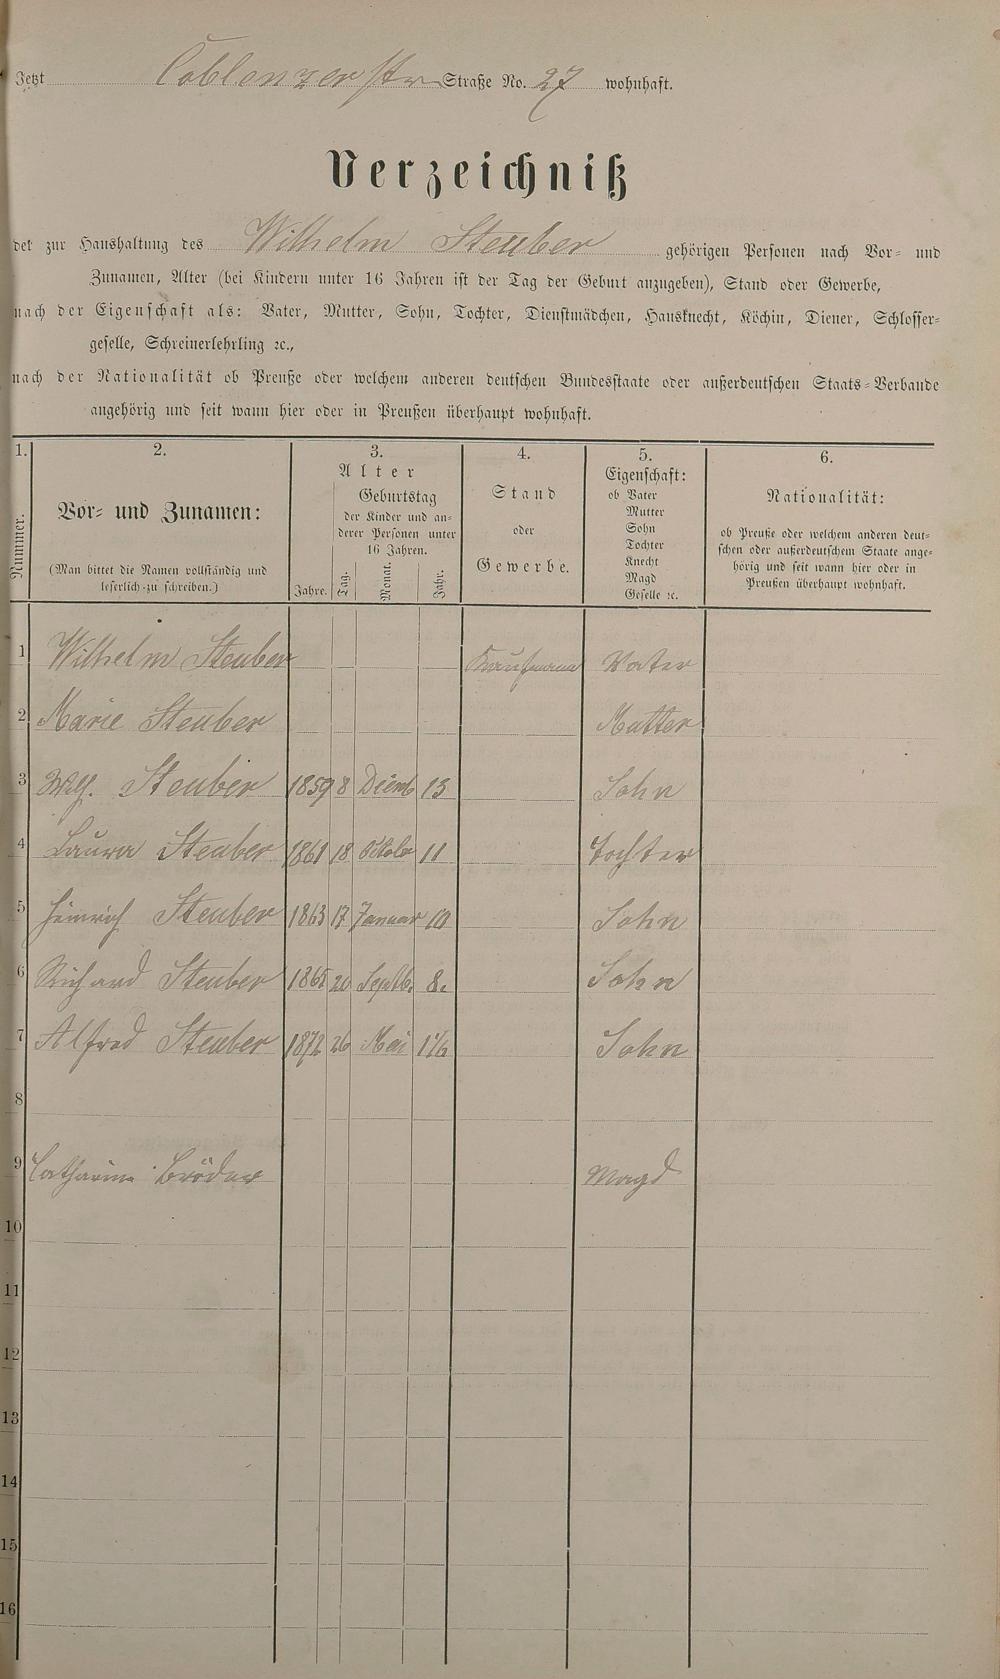 Jetzt Coblenzer str Straße No. 27 wohnhaft.
Verzeichniß
der zur Haushaltung des Wilhelm Steuber gehörigen Personen nach Vor- und
Zunamen, Alter (bei Kindern unter 16 Jahren ist der Tag der Geburt anzugeben), Stand oder Gewerbe,
nach der Eigenschaft als: Vater, Mutter, Sohn, Tochter, Dienstmädchen, Hausknecht, Köchin, Diener, Schlosser-
geselle, Schreinerlehrling ꝛc.,
nach der Nationalität ob Preuße oder welchem anderen deutschen Bundesstaate oder außerdeutschen Staats-Verbande
angehörig und seit wann hier oder in Preußen überhaupt wohnhaft.
1. 2. 3. 4. 5. 6.
Nummer.
Vor- und Zunamen:
(Man bittet die Namen vollständig und
leserlich zu schreiben.)
Alter
Jahre.
Geburtstag
der Kinder und an-
derer Personen unter
16 Jahren.
Tag. Monat. Jahr.
Stand
oder
Gewerbe.
Eigenschaft:
ob Vater
Mutter
Sohn
Tochter
Knecht
Magd
Geselle ꝛc.
Nationalität:
ob Preuße oder welchem anderen deut-
schen oder außerdeutschem Staate ange-
hörig und seit wann hier oder in
Preußen überhaupt wohnhaft.
1 Wilhelm Steuber Kaufmann Vater
2 Marie Steuber Mutter
3 Wilh. Steuber 1859 8 13 Sohn
4 Laura Steuber 1861 18 Oktobr 11 Tochter
5 Heinrich Steuber 1863 17 Januar 10 Sohn
6 Richard Steuber 1865 20 Septb. 8. Sohn
7 Alfred Steuber 1872 26 Mai Sohn
8
9 Catharina Bröder Magd
10
11
12
13
14
15
16